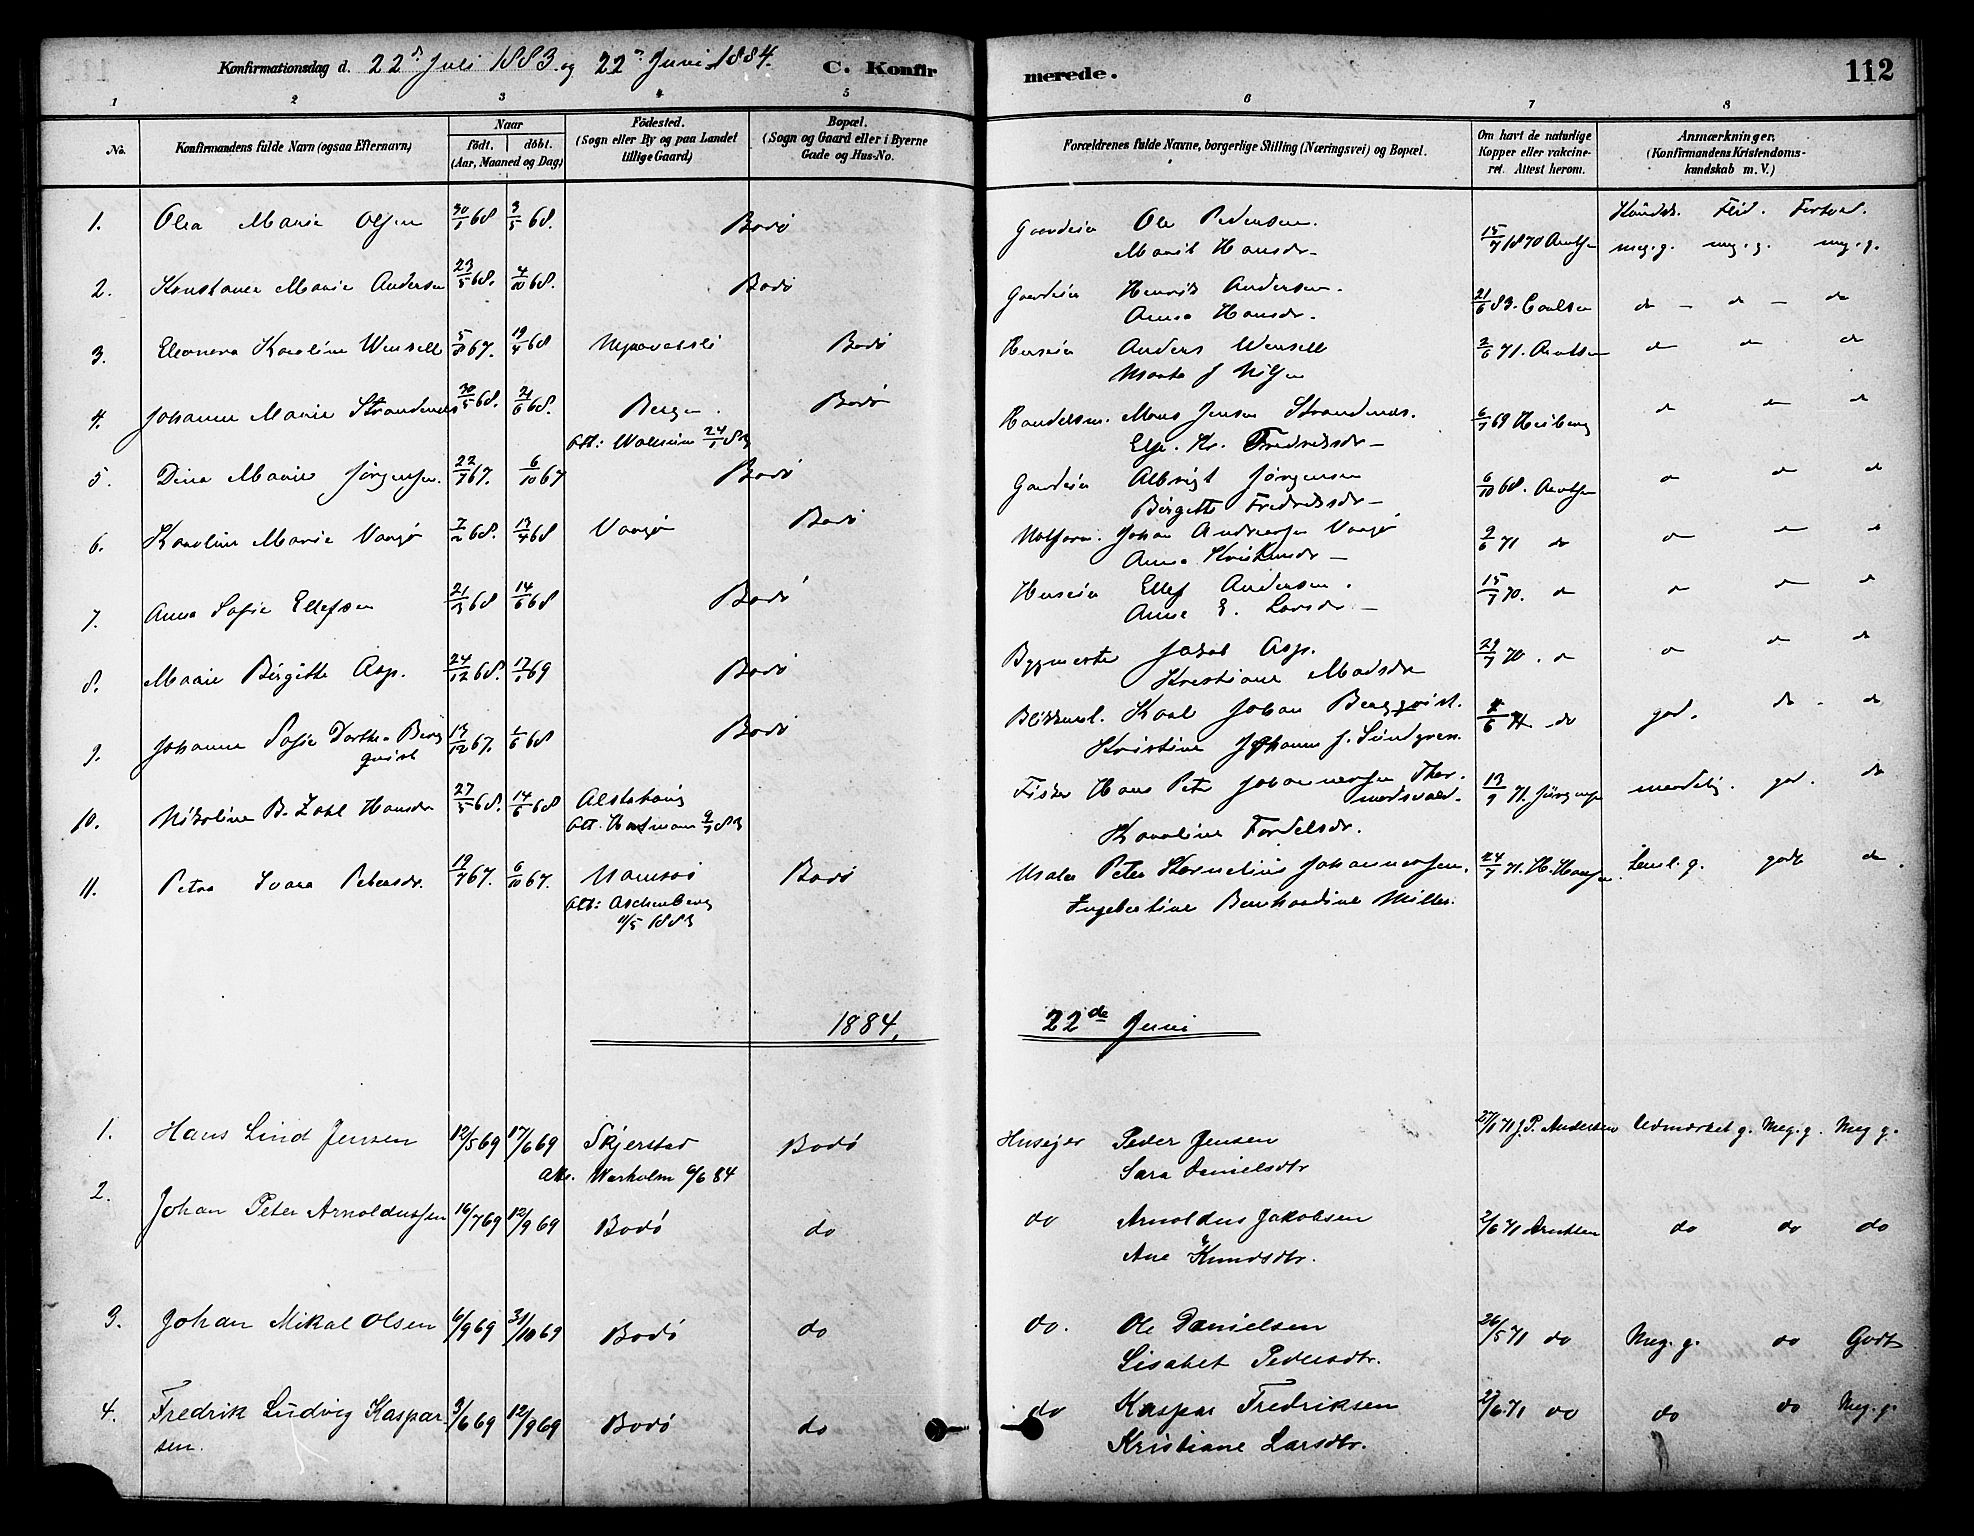 Konfirmationsdag d. 22de Juli 1883 og 22de Juni 1884. C. Konfirmerede. 112
1 2 3 4 5 6 7 8
No. Konfirmandens fulde Navn (ogsaa Efternavn) Naar födt. döbt. (Aar, Maaned og Dag) Födested. (Sogn eller By og paa Landet tillige Gaard) Bopæl. (Sogn og Gaard eller i Byerne Gade og Hus-No. Forældrenes fulde Navne, borgerlige Stilling (Næringsvei) og Bopæl. Om havt de naturlige Kopper eller vakcineret. Attest herom. Anmærkninger. (Konfirmandens Kristendomskundskab m. V.)
Kundsk. Flid. Forhol.
1. Olea Marie Olsen 30/1 68 3/5 68. Bodø Gaardeier Ole Pedersen. 15/7 1870 Arntsen meg. g. meg. g. meg. g.
Marit Hansdr
2. Konstance Marie Andersen 23/5 68. 4/10 68. Bodø Gaardeier Henrik Andersen. 21/6 83. do do do
Anna Hansdr.
3. Eleonora Karoline Wensell 5/8 67. 19/4 68 Bodø Huseier Anders Wensell 2/6 71. Arntsen do do do
Marta J Nilsen
4. Johanne Marie Strandenæs 30/5 68. 21/6 68. Bergen. Bodø Handelsm. Mons Jensen Strandenæs. 6/7 69 Heiberg do do do
Att: 24/1 83 Else Kr. Fredriksdr
5. Dina Marie Jørgensen. 22/7 67. 6/10 67 Bodø Gaardeier Albrigt Jørgensen 6/10 68. Arntsen do do do
Birgitte Fredriksdr
6. Karoline Marie Vaagø 7/2 68. 13/4 68 Vaagø Bodø Johan Andreassen Vaagø 2/6 71 do do do do
Anna
7. Anna Sofie Ellefsen 21/3 68 14/6 68 Bodø Huseier Ellef Andersen. 15/7 70. do do do do
Anne E. Larsdr
8. Marie Birgitte Asp. 24/12 68. 17/1 69 Bodø Bygmester Jakob Asp. 29/7 70. do do do do
Kristiane Madsdr
9. Johanne Sofie Dorthea Berg 13/12 67. 1/6 68 Bodø Karl Johan Bergqvist. do god. do do
qvist Kristine Johanne J.
10. Nikoline B. Zahl Hansdr 27/5 68. 14/6 68 Alstahaug Fisker Hans Peter Johannessen Thor- 13/9 71. Jürgensen god. do
Att. Hartmann 9/7 83
Karoline Fordelsdr.
11. Petra Ivara Petersdr. 19/7 67. 6/10 67. Namsos Bodø Maler Peter Kornelius Johannessen. 24/7 71. H. Hansen godt do
Att: Aschenberg Ingebertine Bernhardine Miller.
11/5 1883
1884. 22de Juni
1. Hans Lind Jensen 12/5 69 17/6 69 Skjerstad Bodø Husejer Peder Jensen 27/6 71 J. P. Andersen Udmærket g. Meg. g. Meg g.
Att. Warholm 6/6 84 Sara Danielsdtr
2. Johan Peter Arnoldussen 16/7 69 12/9 69 Bodø do do Arnoldus Jakobsen 2/6 71 Arntsen do do do
Ane Knudsdtr.
3. Johan Mikal Olsen 6/9 69 31/10 69 Bodø do do. Ole Danielsen 26/5 71 do Meg. g. do Godt
Lisabet Pedersdtr.
4. Fredrik Ludvig Kaspar- 3/6 69 12/9 69 Bodø do do Kaspar Fredriksen 2/6 71 do do do Meg. g.
sen. Kristiane Larsdtr.